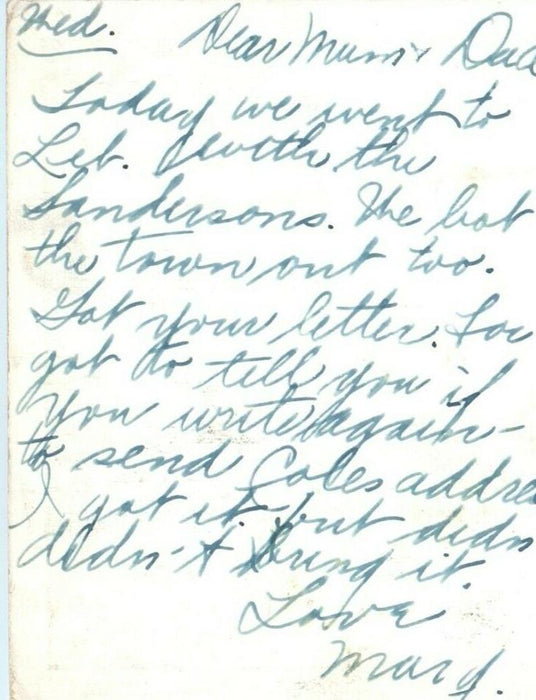 Wed. Dear Mum & Dad
Today we went to
Leb. with the
Sandersons. We bot
the town out too.
Got your letter. For
got to tell you if
you write again -
to send Coles addre
I got it but didn
didn't bring it.
Love
Mary.